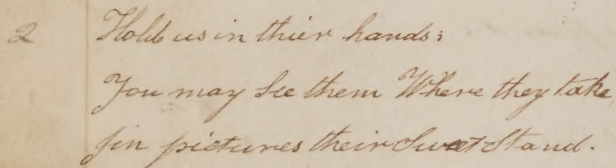 2 Hold us in thier hands;
You may See them Where they take
in pictures their Sweet Stand.